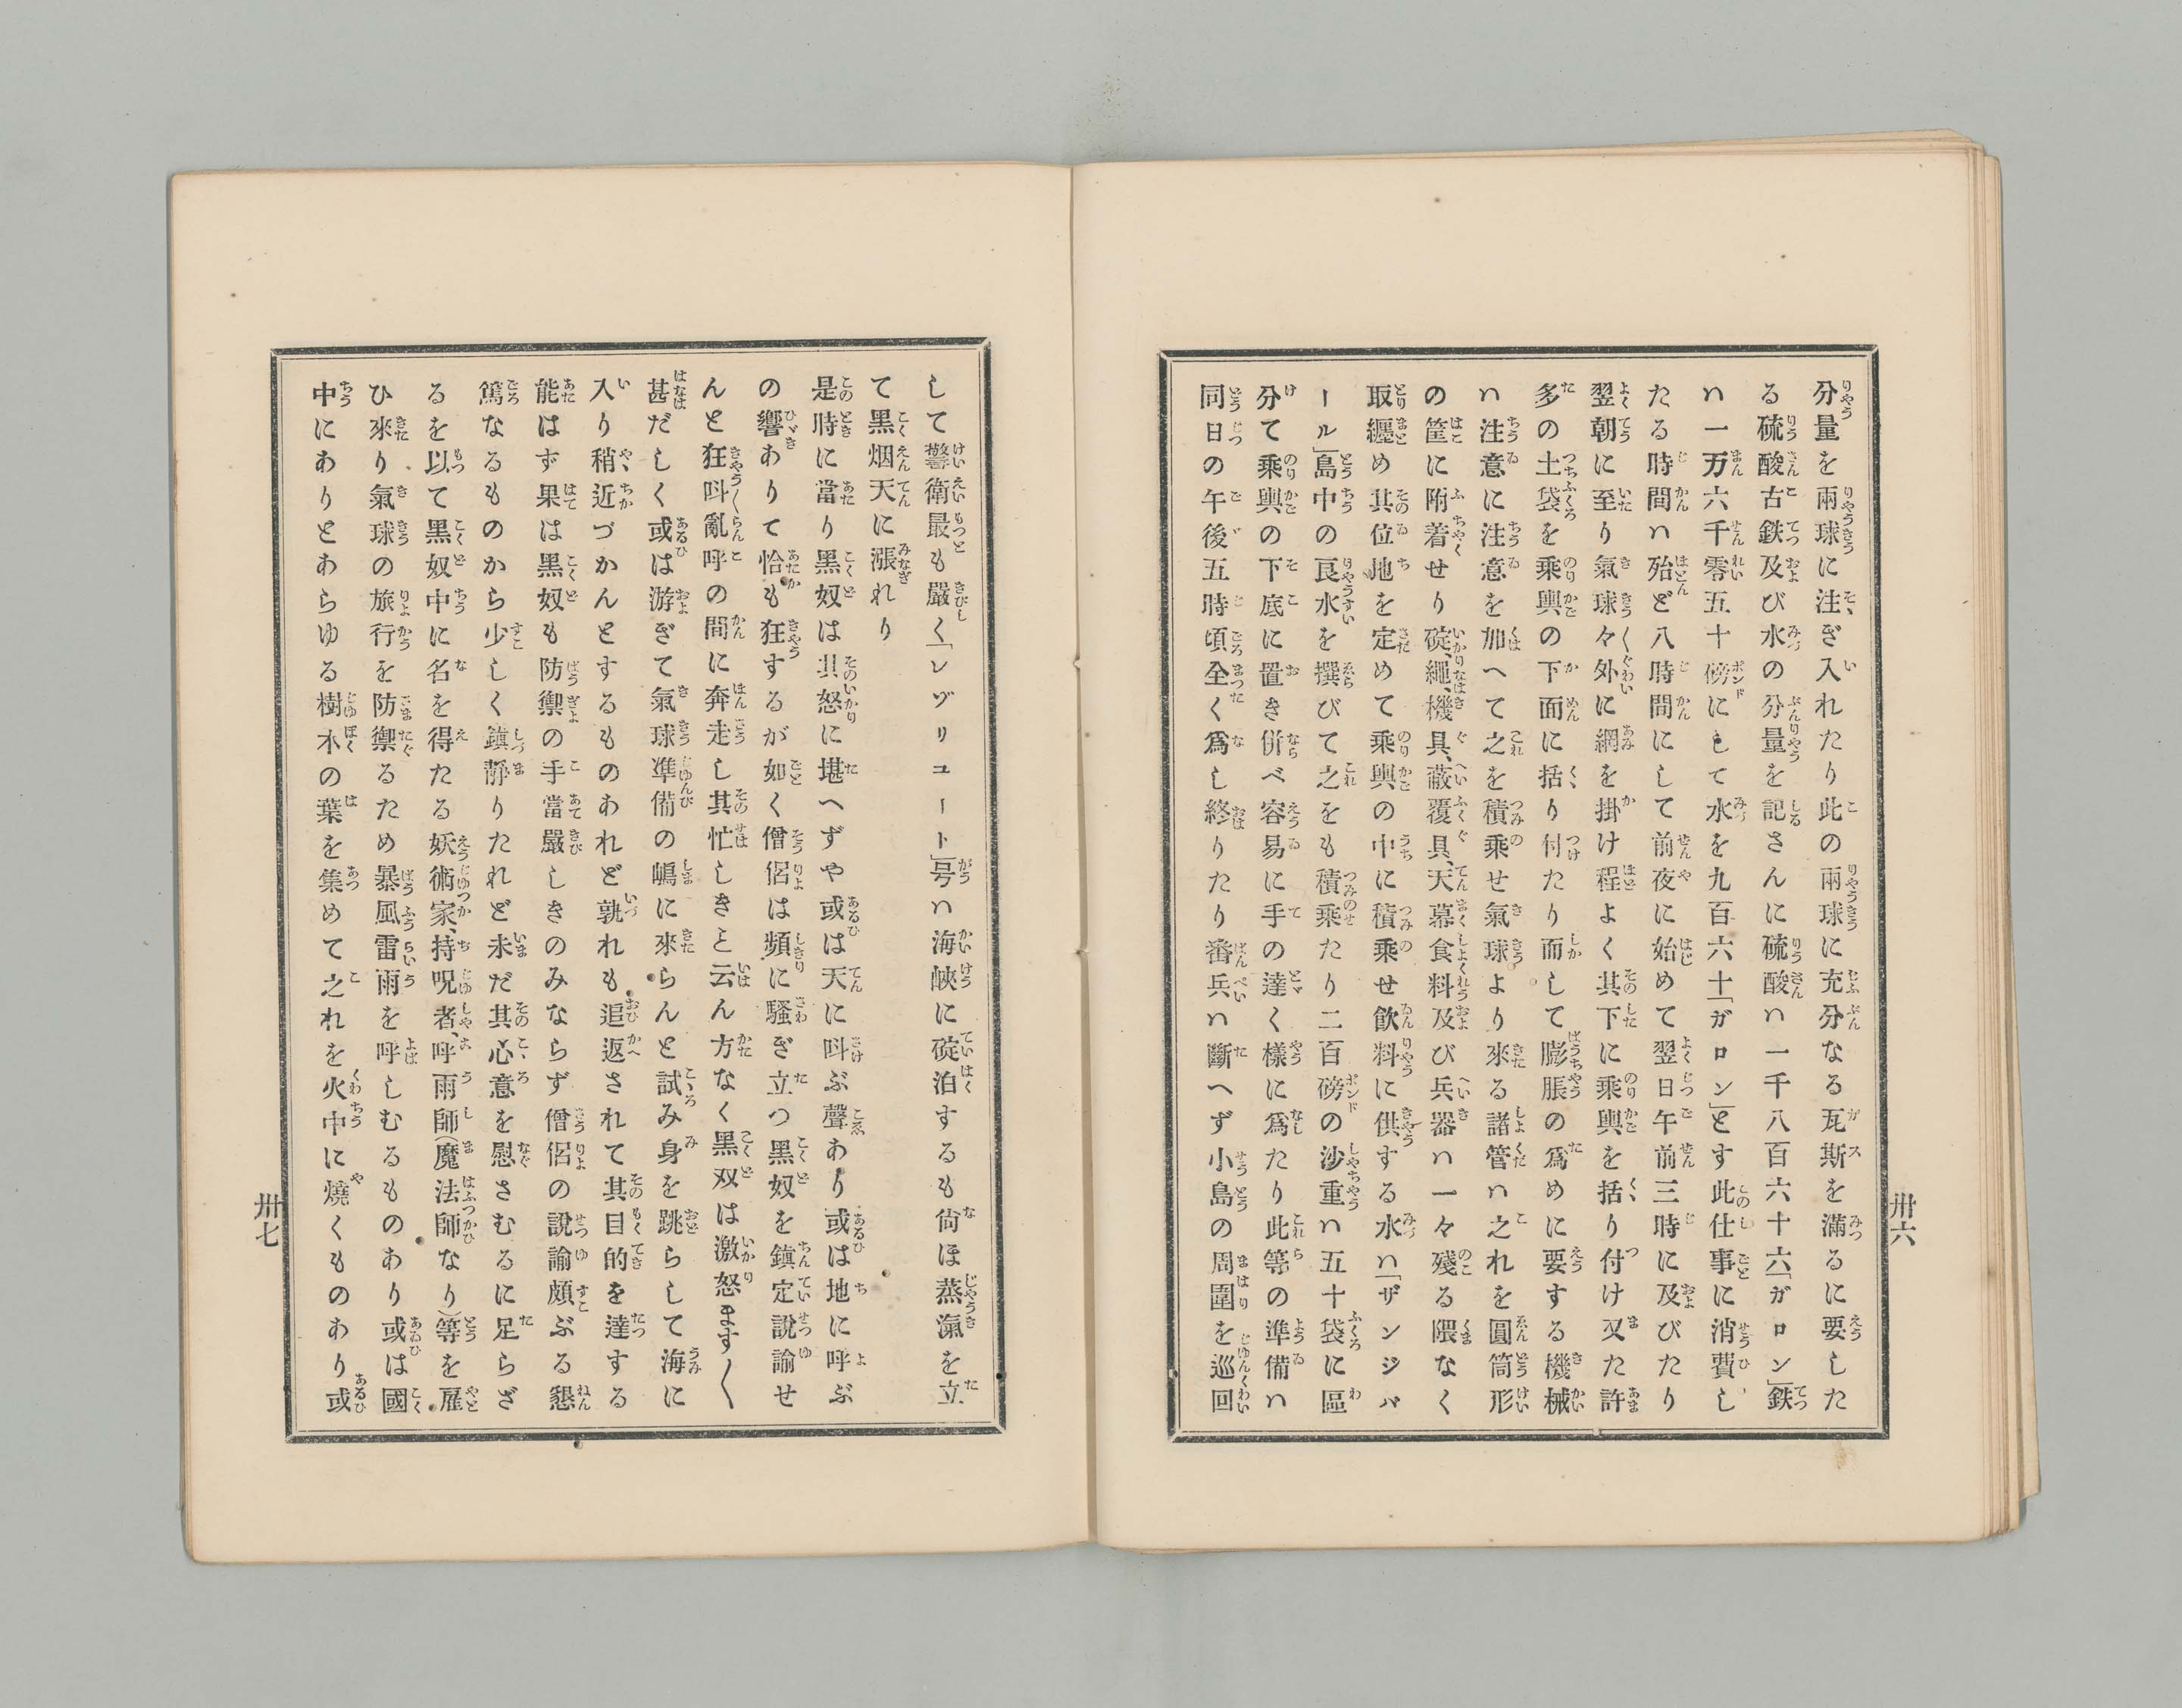 分量を兩球に注ぎ入れたり此の兩球に充分なる瓦斯を滿るに要した
る硫酸古鉄及び水の分量を記さんに硫酸ハ一千八百六十六「ガロン」鉄
ハ一万六千零五十磅にして水を九百六十「ガロン」とす此仕事に消費し
たる時間ハ殆ど八時間にして前夜に始めて翌日午前三時に及びたり
翌朝に至り氣球々外に網を掛け程よく其下に乘輿を括り付け又た許
多の土袋を乘輿の下面に括り付たり而して膨脹の爲めに要する機械
ハ注意に注意を加へて之を積乘せ氣球より來る諸管ハ之れを圓筒形
の筐に附着せり碇、繩、機具、蔽覆具、天幕食料及び兵器ハ一々殘る隈なく
取纒め其位地を定めて乘輿の中に積乘せ飮料に供する水ハ「ザンジバ
ール」島中の良水を撰びて之をも積乘たり二百磅の沙重ハ五十袋に區
分て乘輿の下底に置き併べ容易に手の達く樣に爲たり此等の準備ハ
同日の午後五時頃全く爲し終りたり番兵ハ斷へず小島の周圍を巡回
卅六
して警衛最も嚴く「レヅリユート」号ハ海峽に碇泊するも尙ほ蒸滊を立
て黑烟天に漲れり
是時に當り黑奴は其怒に堪へずや或は天に呌ぶ聲あり或は地に呼ぶ
の響ありて恰も狂するが如く僧侶は頻に騷ぎ立つ黑奴を鎭定說諭せ
んと狂呌亂呼の間に奔走し其忙しきと云ん方なく黑奴は激怒ます〱
甚だしく或は游ぎて氣球凖備の嶋に來らんと試み身を跳らして海に
入り稍近づかんとするものあれど孰れも追返されて其目的を達する
能はず果は黑奴も防禦の手當嚴しきのみならず僧侶の說諭頗ぶる懇
篤なるものから少しく鎭靜りたれど未だ其心意を慰さむるに足らざ
るを以て黑奴中に名を得たる妖術家、持呪者、呼雨師(魔法師なり)等を雇
ひ來り氣球の旅行を防禦るため暴風雷雨を呼しむるものあり或は國
中にありとあらゆる樹木の葉を集めて之れを火中に燒くものあり或
卅七